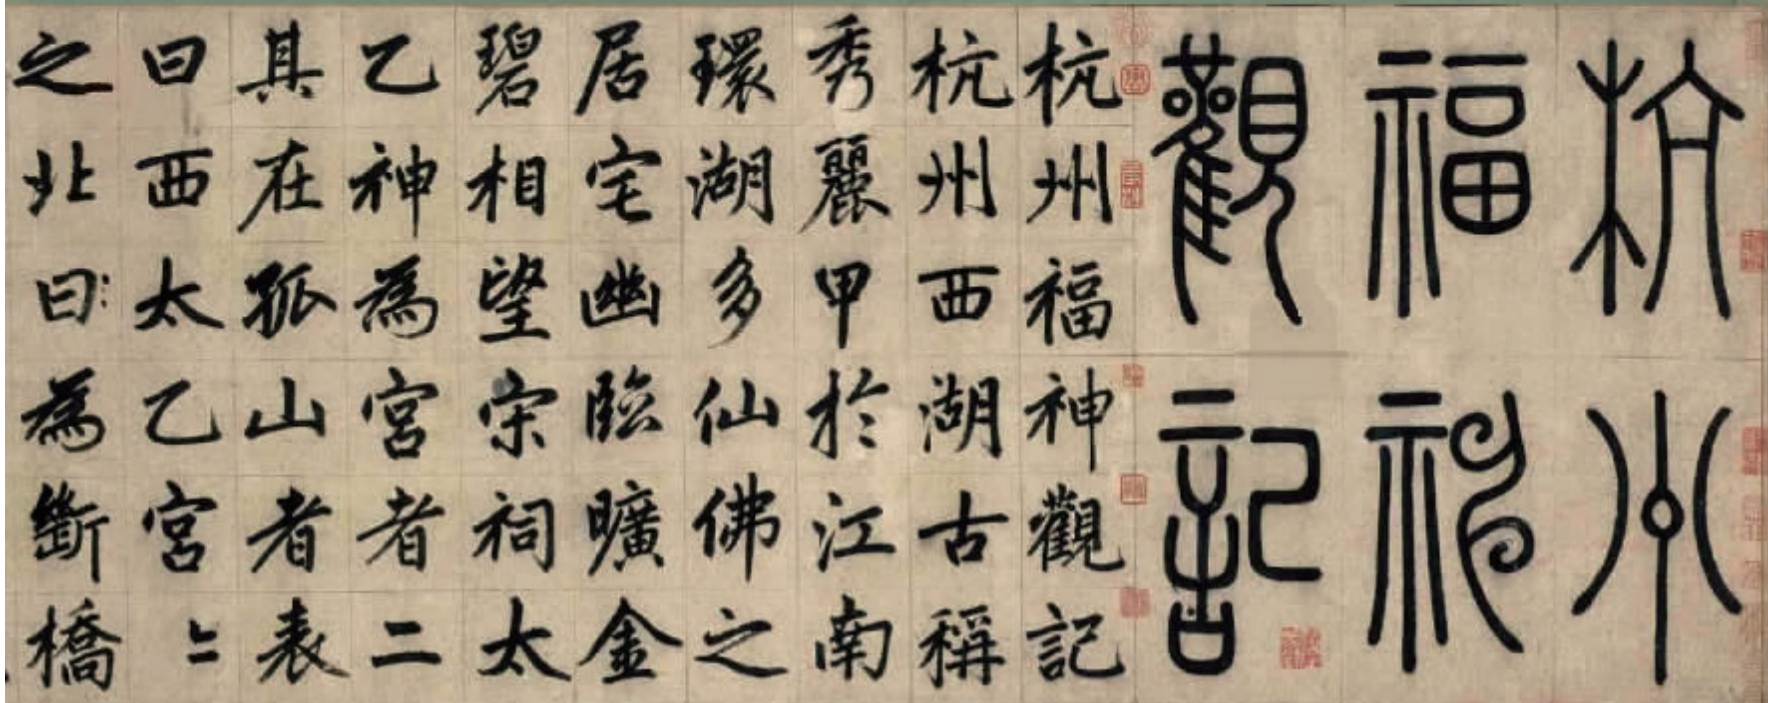 杭州
福神
觀記
杭州福神觀記
杭州西湖古稱
秀麗甲於江南
環湖多仙佛之
居宅幽臨曠金
碧相望宗祠太
乙神為宮者二
其在孤山者表
曰西太乙宮〻
之北曰為斷橋